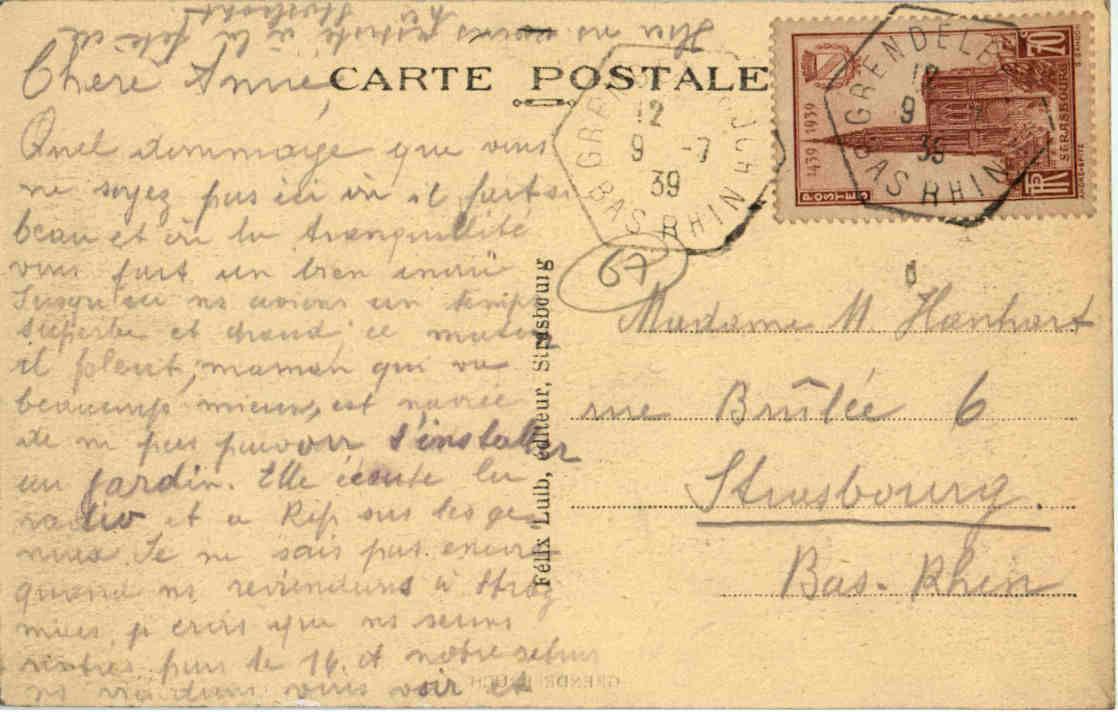 CARTE POSTALE
Chère Annie
Quel dommage que vous
ne soyez pas ici où il fait si
beau et où la tranquillité
vous fait un bien inouï
Jusqu'ici ns avons un temps
superbe et chaud ce matin
il pleut, maman qui va
beaucoup mieux, est navrée
de ne pas pouvoir s'installer
au jardin. Elle écoute la
radio et a Kip sur les ge-
noux. Je ne sais pas encore
quand ns reviendrons à Strbg
mais je crois que ns serons
rentrés pour le 16. A notre retour
ns viendrons vous voir et
à la fête
Félix Luib, éditeur, Strasbourg
GRENDELBRUCH
12
9 -7
39
BAS RHIN
67
1439 1939
POSTES
STRASBOURG
70
GRENDELB
12
9
39
BAS RHIN
Madame M. Hanhart
rue Brûlée 6
Strasbourg.
Bas-Rhin
GRENDELBRUCH